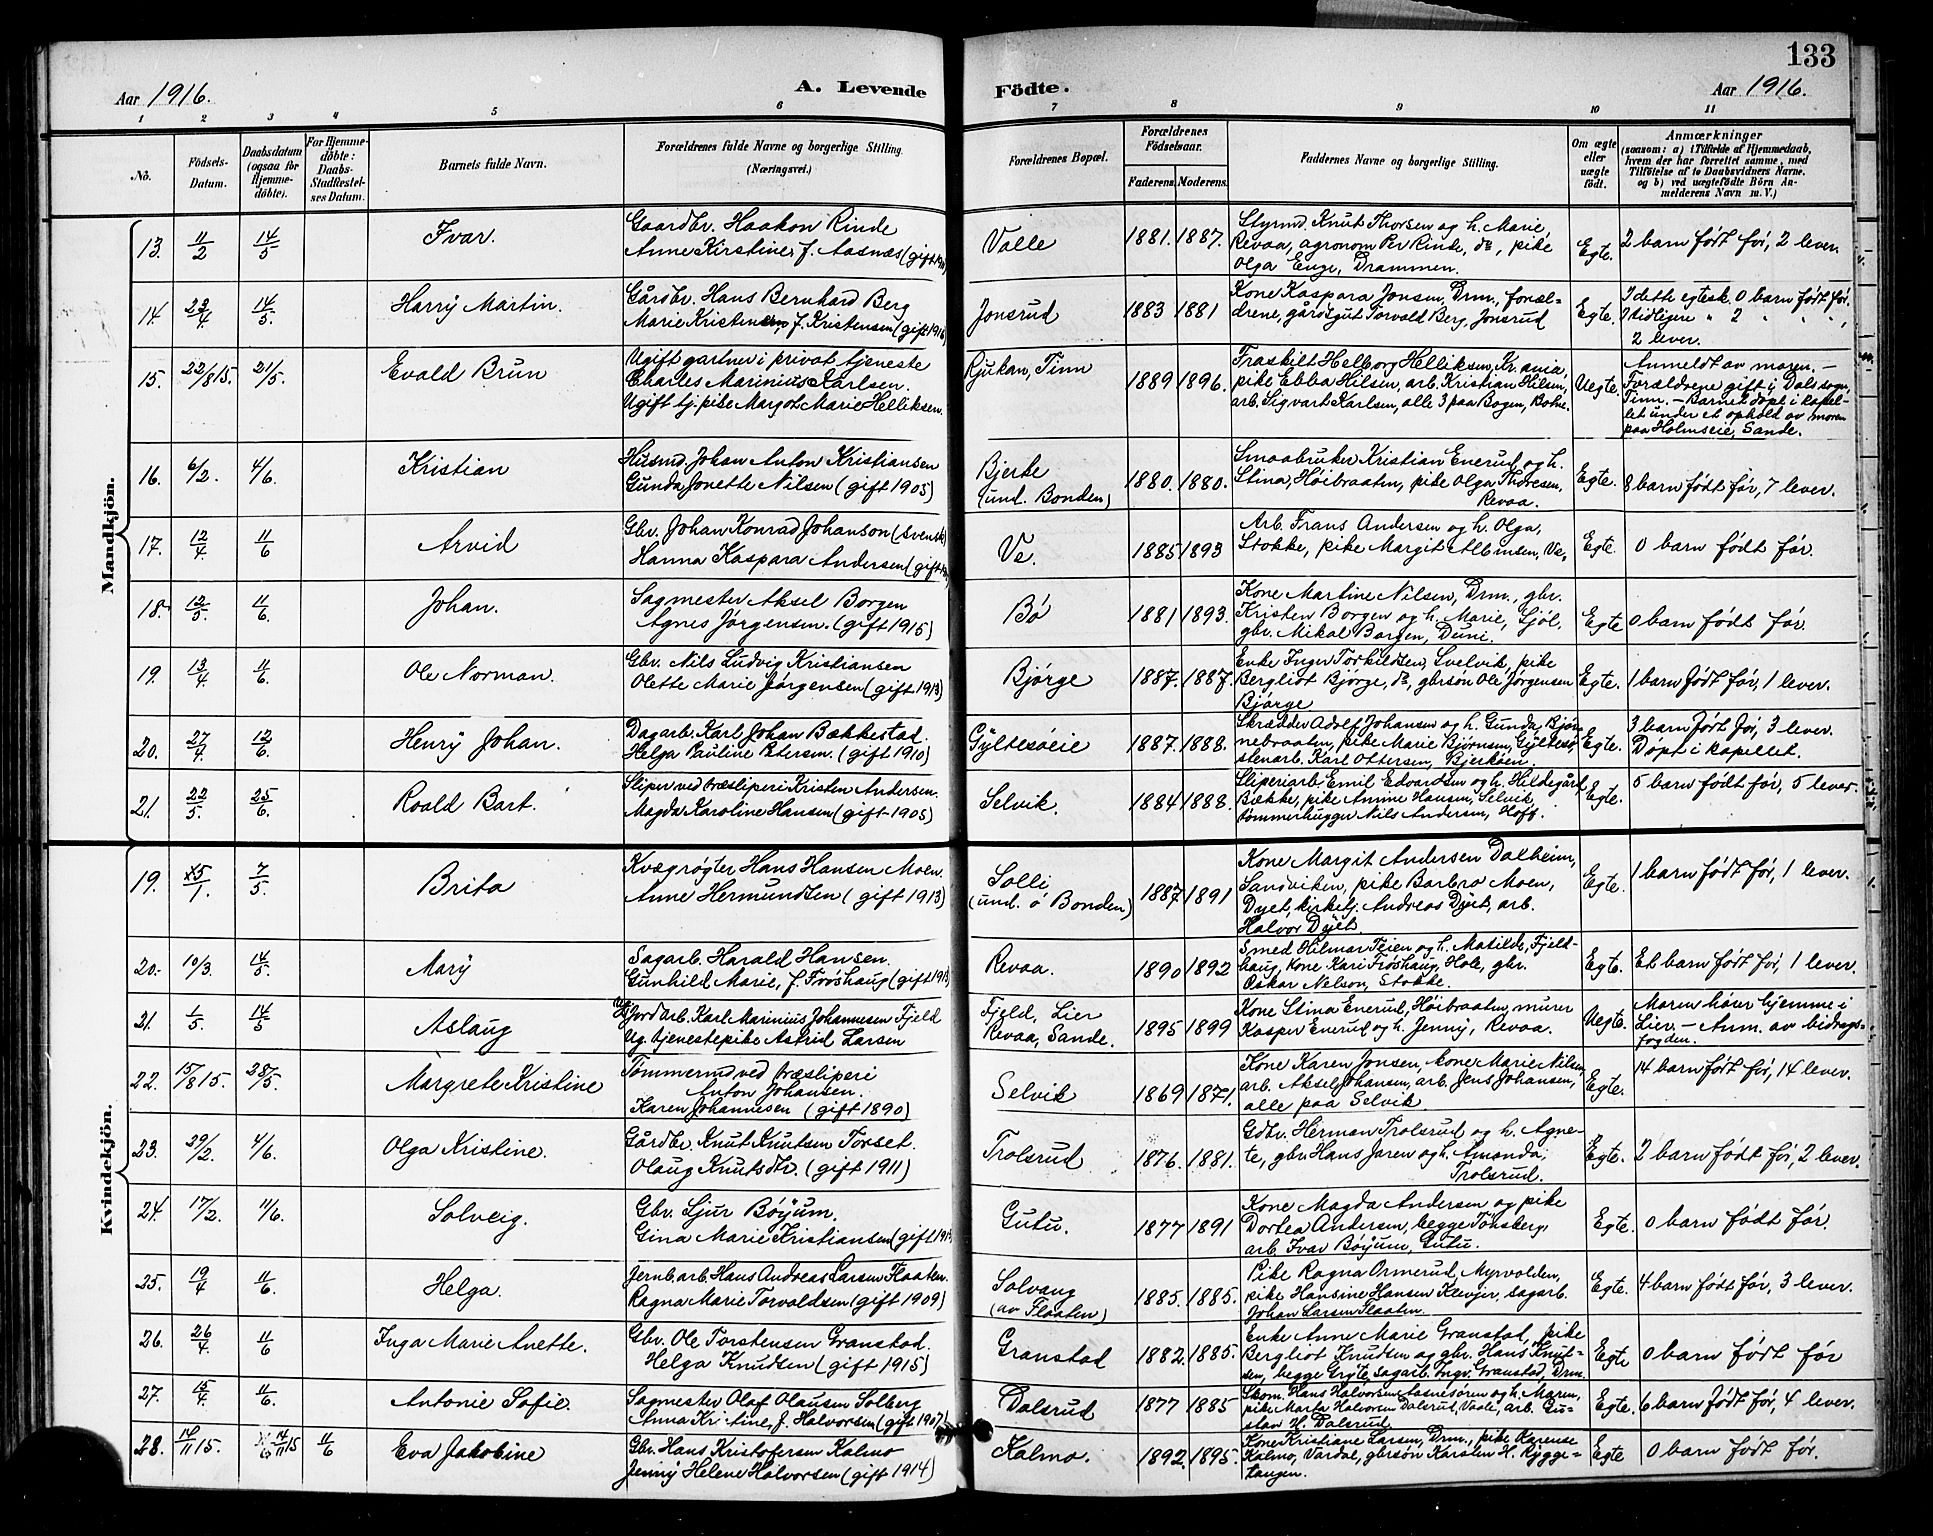 133
Aar 1916.
A. Levende Födte.
Aar 1916.
1 2 3 4 5 6 7 8 9 10 11
No.
Födsels-Datum.
Daabsdatum (ogsaa for Hjemme-döbte).
For Hjemme-döbte: Daabs-Stadfæstel-ses Datum.
Barnets fulde Navn.
Forældrenes fulde Navne og borgerlige Stilling. (Næringsvei.)
Forældrenes Bopæl.
Forældrenes Födselsaar.
Faderens. Moderens.
Faddernes Navne og borgerlige Stilling.
Om ægte eller uægte födt.
Anmærkninger
(saasom: a) i Tilfælde af Hjemmedaab, hvem der har forrettet samme, med Tilföielse af to Daabsvidners Navne. og b) ved uægtefödte Börn An-melderens Navn m. V.)
Mandkjön.
13. 11/2 14/5 Ivar.
Gaardbr. Haakon Rinde
Anne Kirstine, f. Aasnæs (gift 1911)
Valle 1881. 1887.
Styrmd. Knut Thorsen og h. Marie,
Revaa, agronom Per Rinde, do, pike
Olga Enge, Drammen.
Egte. 2 barn født før, 2 lever.
14. 23/4 14/5. Harry Martin.
Gårdbr. Hans Bernhard Berg
Marie Kristensen f. Kristensen (gift 1916)
Jonsrud 1883 1881
Kone Kaspara Jonsen, Drm., foræl-
drene, gårdgut Torvald Berg, Jonsrud
Egte. I dette egtesk. 0 barn født før.
I tidligere " 2 " " "
2 lever.
15. 22/8 15. 21/5. Evald Brun
Ugift gartner i privat tjeneste
Charles Marinius Karlsen.
Ugift tj. pike Margot Marie Helliksen.
Rjukan, Tinn 1889 1896.
Fraskilt Helborg Helliksen, Kr.ania,
pike Ebba Hilsen, arb. Kristian Hilsen,
arb. Sigvart Karlsen, alle 3 paa Bogen, Botne.
Uegte. Anmeldt av moren. –
Forældrene gift i Dals sogn,
Tinn. – Barnet døpt i kapel-
let under et ophold av moren
paa Holmseie, Sande.
16. 6/2. 4/6. Kristian
Husmd. Johan Anton Kristiansen
Gunda Jonette Nilsen (gift 1905)
Bjerke
(und. Bonden) 1880. 1880.
Smaabruker Kristian Enerud og h.
Stina, Høibraaten, pike Olga Thoresen,
Revaa.
Egte. 8 barn født før, 7 lever.
17. 12/4 11/6 Arvid
Gbr. Johan Konrad Johanson (svensk)
Hanna Kaspara Andersen (gift
Ve. 1885 1893
Arb. Frans Andersen og h. Olga,
Stokke, pike Margit Albinsen, Ve.
Egte. 0 barn født før.
18. 12/5. 11/6. Johan.
Sagmester Aksel Borgen
Agnes Jørgensen. (gift 1915)
Bø 1881 1893.
Kone Martine Nilsen, Drm., gbr.
Kristen Borgen og h. Marie, Gjøl,
gbr. Mikal Borgen, Duni.
Egte 0 barn født før.
19. 13/4. 11/6. Ole Norman.
Gbr. Nils Ludvig Kristiansen
Olette Marie Jørgensen (gift 1913)
Bjørge 1887. 1887.
Enke Inger Torkildsen, Svelvik, pike
Bergliot Bjørge, do, gbrsøn Ole Jørgensen
Bjørge
Egte. 1 barn født før, 1 lever.
20. 27/4. 12/6. Henry Johan.
Dagarb. Karl Johan Bækkestad.
Helga Pauline Petersen. (gift 1910)
Gyltesøeie 1887. 1888.
Skrædder Adolf Johansen og h. Gunda, Bjør-
nebraaten, pike Marie Bjørnsen, Gyltesø
stenarb. Karl Ottersen, Bjerkøen
Egte. 3 barn født før, 3 lever.
Døpt i kapellet.
21. 22/5. 25/6. Roald Bart.
Sliper ved træsliperi Kristen Andersen.
Magda Karoline Hansen (gift 1905)
Selvik. 1884 1888.
Sliperiarb. Emil Edvardsen og h. Hildegård,
Bække, pike Amine Hansen, Selvik,
tømmerhugger Nils Andersen, Hoff.
Egte. 5 barn født før, 5 lever.
Kvindekjön.
19. 25/1. 7/5. Brita
Kvægrøgter Hans Hansen Moen.
Anne Hermundsen (gift 1913)
Solli
(und. ø Bonden) 1887 1891
Kone Margit Andersen Dalheim,
Sandviken, pike Barbro Moen,
Dyet, kirketj. Andreas Dyet, arb.
Halvor Dyet.
Egte. 1 barn født før, 1 lever.
20. 10/3. 14/5. Mary
Sagarb. Harald Hansen.
Gunhild Marie, f. Frøshaug (gift 1913)
Revaa. 1890 1892
Smed Hilmar Teien og h. Matilde, Fjeld-
haug, kone Kari Frøshaug, Hole, gbr.
Oskar Nelson, Stokke.
Egte. Et barn født før, 1 lever.
21. 1/5. 14/5 Aslaug
Ug. Jordarb. Karl Marinius Johannesen Fjeld
Ug. tjenestepike Astrid Larsen
Fjeld, Lier
Revaa, Sande. 1895 1899
Kone Stina Enerud, Høibraaten, murer
Kasper Enerud og h. Jenny, Revaa.
Uegte. Moren hører hjemme i
Lier. – Anm. av bidrags-
fogden.
22. 15/8 15. 28/5. Margrete Kristine
Tømmermd ved træsliperi
Anton Johansen.
Karen Johannesen (gift 1890)
Selvik 1869 1871.
Kone Karen Jonsen, kone Marie Nilsen,
arb. Aksel Johansen, arb. Jens Johansen,
alle paa Selvik.
Egte. 14 barn født før, 14 lever.
23. 29/2. 4/6. Olga Kristine.
Gårdbr. Knut Knutsen Torset.
Olaug Knutsdtr. (gift 1911)
Trolsrud 1876. 1881.
Gdbr. Herman Trolsrud og h. Agne-
te, gbr. Hans Jaren og h. Amanda,
Trolsrud.
Egte. 2 barn født før, 2 lever.
24. 17/2. 11/6. Solveig.
Gbr. Sjur Bøyum.
Gina Marie Kristiansen (gift
Gutu. 1877 1891
Kone Magda Andersen og pike
Dortea Andersen, begge Tønsberg,
arb. Ivar Bøyum, Gutu.
Egte. 0 barn født før.
25. 19/4 11/6 Helga.
Jernb.arb. Hans Andreas Larsen Flaaten.
Ragna Marie Torvaldsen (gift 1909)
Solvang
(av Flaaten) 1885. 1885.
Pike Ragna Ormerud, Myrvolden,
pike Hansine Hansen Klevjer, sagarb.
Johan Larsen Flaaten.
Egte. 4 barn født før, 3 lever.
26. 26/4 11/6 Inga Marie Anette.
Gbr. Ole Torstensen Granstad.
Helga Knudsen (gift 1915)
Granstad 1882. 1885.
Enke Anne Marie Granstad, pike
Bergliot Knutsen og gbr. Hans Knut-
sen, begge Gryte, sagarb. Ingv. Granstad, Drm.
Egte 0 barn født før
27. 15/4 11/6. Antonie Sofie.
Sagmester Olaf Olausen Solberg
Anna Kristine, f. Halvorsen (gift 1907)
Dalsrud 1877 1885
Skom. Hans Halvorsen Aasnesøren og h. Maren,
pike Marta Halvorsen Dalsrud, Vaale, arb. Gu-
stav H. Dalsrud
Egte. 6 barn født før, 4 lever.
28. 14/11 15. 14/11 15 11/6 Eva Jakobine
Gbr. Hans Kristofersen Kalmo
Jenny Helene Halvorsen (gift 1914)
Kalmo. 1892. 1895.
Kone Kristiane Larsen, Drm., pike Karense
Kalmo, Vardal, gbrsøn Karsten H. Rygge-
tangen.
Egte 0 barn født før.